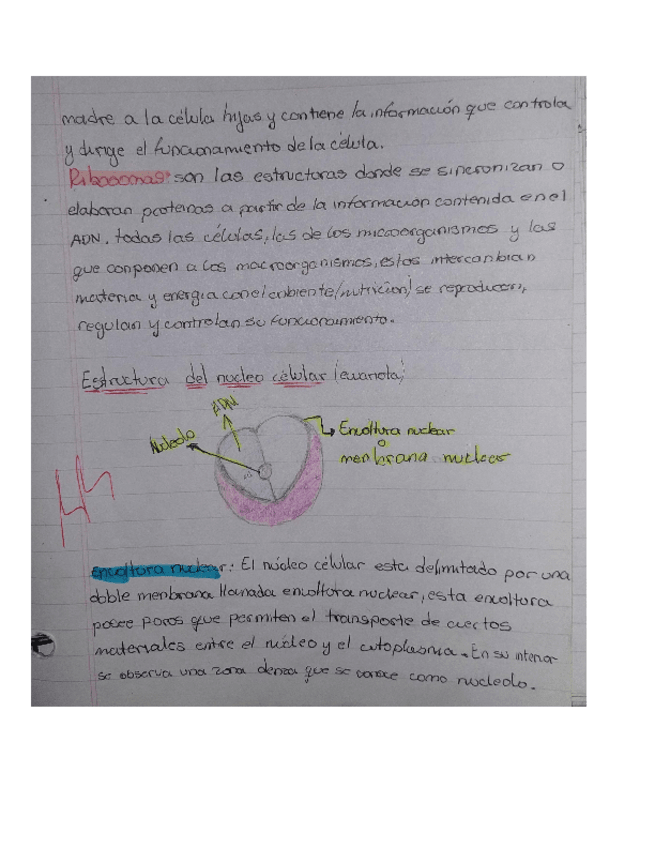 madre a la célula hijas y contiene la información que controla
y dirige el funcionamiento de la célula.
Ribosomas: son las estructuras donde se sincronizan o
elaboran proteinas a partir de la información contenida en el
ADN. todas las células, las de los microorganismos y las
que conponen a los macroorganismos, estos intercanbian
materia y energia con el anbiente (nutricion) se reproducen,
regulan y controlan su funcionamiento.
Estructura del nucleo célular (euariota)
ADN
Nucleolo
Envoltura nuclear
o
menbrana nuclear
Envoltura nuclear: El núcleo célular esta delimitado por una
doble menbrana llamada envoltura nuclear, esta envoltura
posee poros que permiten el transporte de ciertos
materiales entre el núcleo y el citoplasma. En su interior
se observa una zona denza que se conoce como nucleolo.